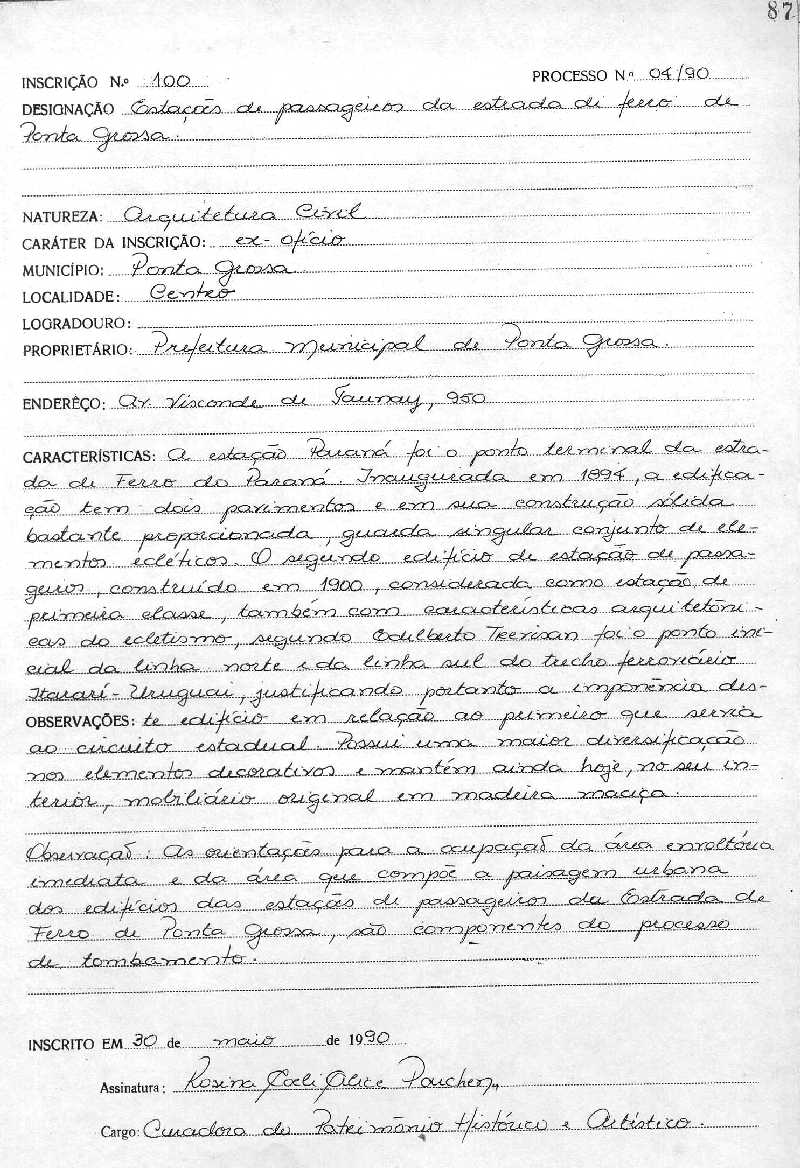 87
INSCRIÇÃO N.º 100 PROCESSO N.º 04/90
DESIGNAÇÃO Estações de passageiros da estrada di ferro de
Ponta Grossa.
NATUREZA: Arquitetura Civil
CARÁTER DA INSCRIÇÃO: ex-ofício
MUNICÍPIO: Ponta Grossa
LOCALIDADE: Centro
LOGRADOURO:
PROPRIETÁRIO: Prefeitura Municipal de Ponta Grossa.
ENDERÊÇO: Av. Visconde de Taunay, 950
CARACTERÍSTICAS: A estação Paraná foi o ponto terminal da estra-
da de Ferro do Paraná. Inaugurada em 1894, a edifica-
ção tem dois pavimentos e em sua construção sólida
bastante proporcionada, guarda singular conjunto de ele-
mentos ecléticos. O segundo edifício de estação de passa-
geiros, construído em 1900, considerada como estação de
primeira classe, também com características arquitetôni-
cas do ecletismo, segundo Odilberto Trevisan foi o ponto ini-
cial da linha norte e da linha sul do trecho ferroviário
Itararé-Uruguai, justificando portanto a imponência des-
OBSERVAÇÕES: te edifício em relação ao primeiro que servia
ao circuito estadual. Possui uma maior diversificação
nos elementos decorativos e mantém ainda hoje, no seu in-
terior, mobiliário original em madeira maciça.
Observação: As orientações para a ocupação da área envoltória
imediata e da área que compõe a paisagem urbana
dos edifícios das estações de passageiros da Estrada de
Ferro de Ponta Grossa, são componentes do processo
de tombamento.
INSCRITO EM 30 de maio de 1990.
Assinatura: Rosina Alice
Cargo: Curadora do Patrimônio Histórico e Artístico.